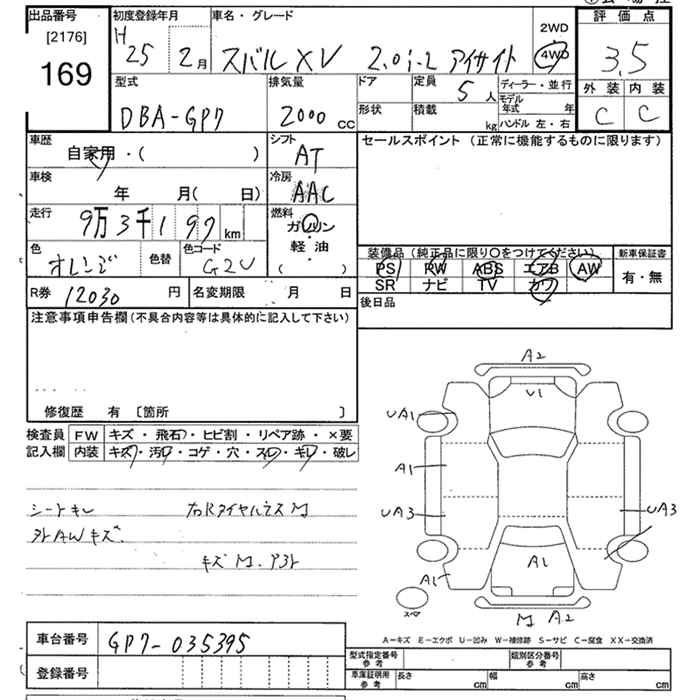 出品番号 初度登録年月 車名・グレード 評価点
[2176]
169
H 25 2月
スバル XV 2.0i-L アイサイト
2WD
4WD
3.5
型式 排気量 ドア 定員 5人 ディーラー・並行
外装 内装
DBA-GP7 2000 cc
形状 積載 kg
モデル年式 年
ハンドル 左・右
C C
車歴 自家用・( )
シフト AT
セールスポイント (正常に機能するものに限ります)
車検 年 月( 日)
冷房 AAC
走行 9万3千197km
燃料 ガソリン・軽油 ( )
色 オレンジ 色替 色コード G2U
装備品 (純正品に限り○をつけてください) 新車保証書
PS PW ABS エアB AW 有・無
SR ナビ TV カワ
R券 12030 円 名変期限 月 日
後日品
注意事項申告欄(不具合内容等は具体的に記入して下さい)
修復歴 有 〔箇所 〕
検査員 FW キズ・飛石・ヒビ割・リペア跡・×要
記入欄 内装 キズ・汚レ・コゲ・穴・スレ・キレ・破レ
シートキレ
外AWキズ
キズ
A2
U1
UA1
A1
UA3 UA3
A1
A1
スペア
A2
A-キズ E-エクボ U-凹み W-補修跡 S-サビ C-腐食 XX-交換済
車台番号 GP7-035395
型式指定番号 参考 類別区分番号 参考
登録番号
車庫証明用 参考 長さ cm 幅 cm 高さ cm